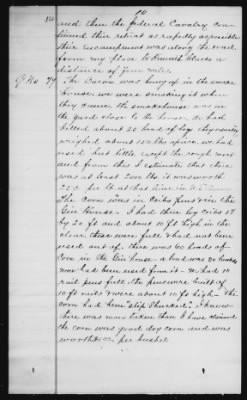 20
and then the federal Cavalry con
tinued their retreat as rapidly as possible
their encampment was along the road
from my place to
distance of
The Bacon was hung up in the smoke
house. we were smoking it when
they came the smokehouse was in
the yard close to the house. We had
killed about 20 head of hogs they would
weighed about 150 lbs apiece. we had
used but little except the rough meat
and from this I estimate that there
was at least 2000 lbs it was worth
25c per lb at that time in
The corn was in cribs pens & in the
Gin House. I had three log cribs 18
by 20 ft and about 10 ft high in the
clear. these were full & had not been
used out of. there was 60 loads of
corn in the Gin house a load was 20 bushels
none had been used from it. We had 10
rail pens full the pens were built of
10 ft rails & were about 10 ft high. The
corn had been "slip shucked". I know
there was more taken than I have claimed
the corn was good dry corn and was
worth per bushel